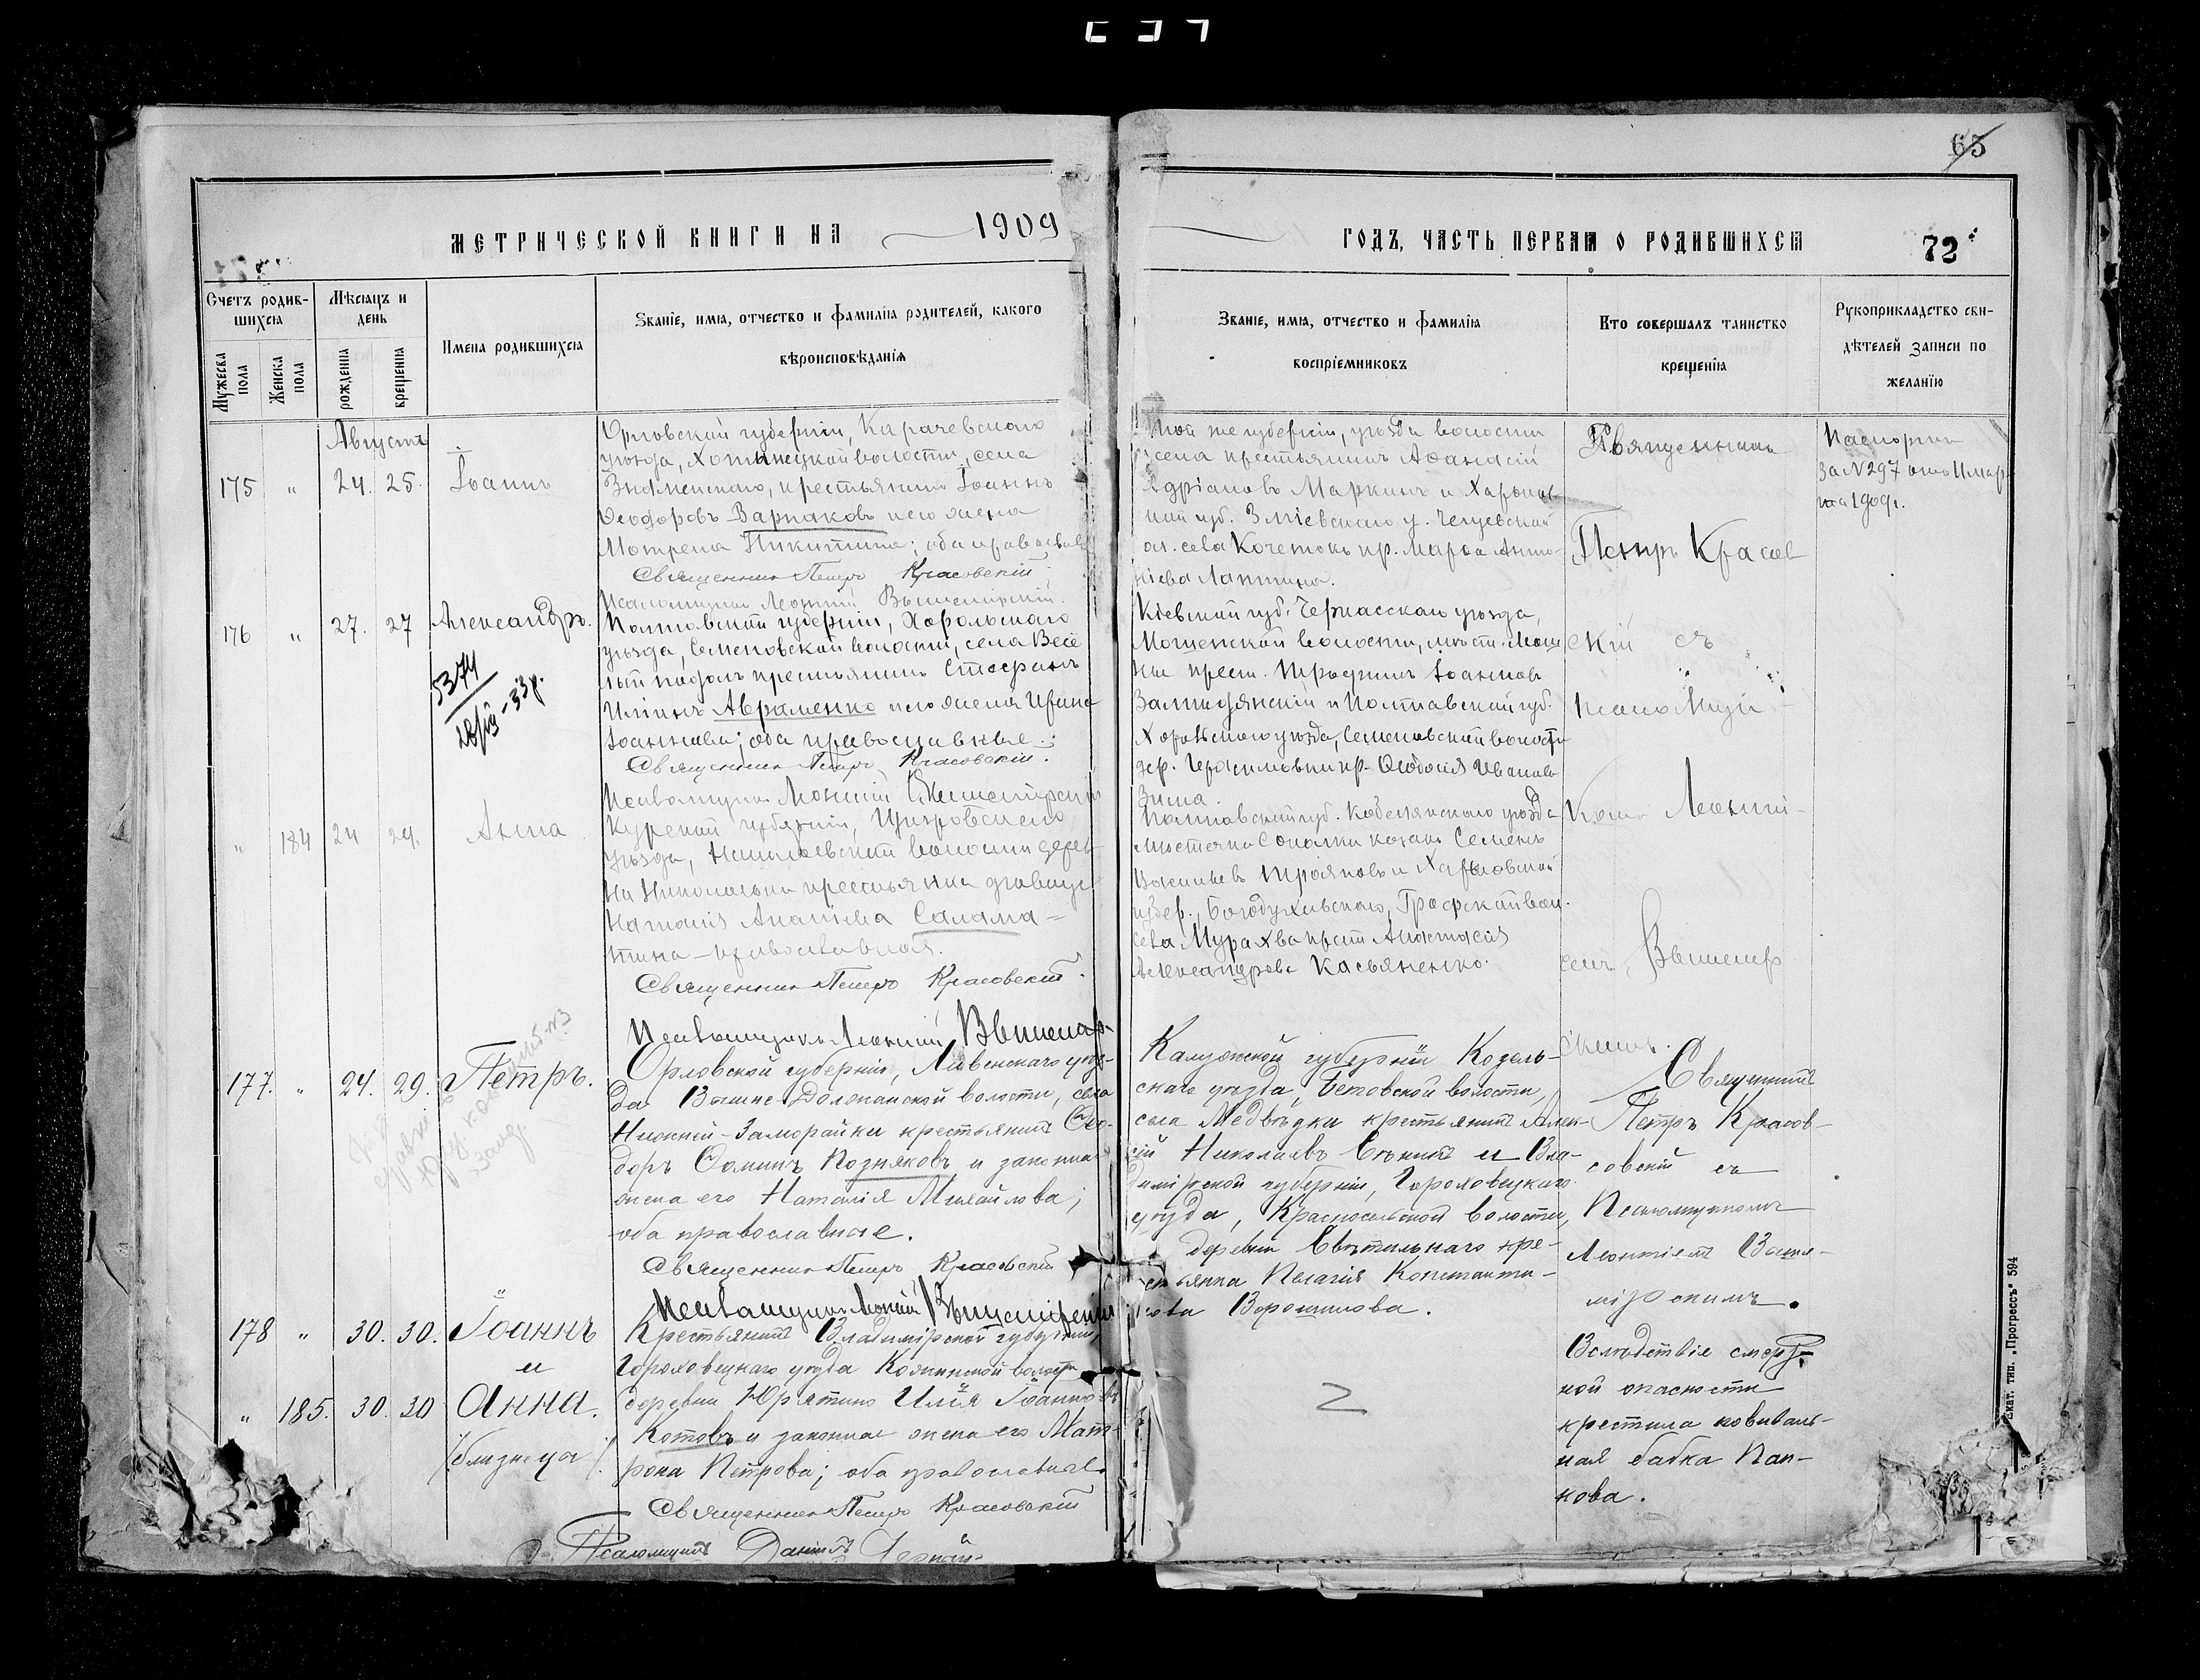 63
МЕТРИЧЕСКОЙ КНИГИ НА 1909 ГОДЪ, ЧАСТЬ ПЕРВАЯ О РОДИВШИХСЯ 72
Счетъ родив-
шихся
Мужеска пола
Женска пола
Мѣсяцъ и
день
рожденія
крещенія
Имена родившихся
Званіе, имя, отчество и фамилія родителей, какого
вѣроисповѣданія
Званіе, имя, отчество и фамилія
воспріемниковъ
Кто совершалъ таинство
крещенія
Рукоприкладство сви-
дѣтелей записи по
желанію
Августъ
175 " 24. 25. Іоаннъ
Орловской губерніи, Карачевскаго
уѣзда, Хотынецкой волости, села
Знаменскаго, крестьянинъ Іоаннъ
Ѳеодоровъ Варпаковъ и его жена
Матрена Никитина; оба православн
Священникъ Петръ Красовскій
Псаломщикъ Леонтій
Той же губерніи, уѣзда волости
села крестьянинъ Аѳанасій
Адріановъ Маркинъ и Харьков
ской губ. Зміевскаго у. Чугуевской
ол. села Кочетокъ кр. Марѳа Анто-
ніева Лаптина.
Священникъ
Петръ Красов
Паспортъ
за №297 отъ 11 мар
та 1909г.
176 " 27. 27 Александръ.
5374
Полтавской губерніи, Хорольскаго
уѣзда, Семеновской волости, села Весе
лый подолъ крестьянинъ Стефанъ
Иліинъ Авраменко и его жена Ирина
Іоаннова; оба православные.
Священникъ Петръ Красовскій.
Псаломщикъ Леонтій
Кіевской губ. Черкасскаго уѣзда,
Мошенской волости, мѣст. Мош
ны крест. Трофимъ Іоанновъ
и Полтавской губ.
Хорольскаго уѣзда, Семеновской волости
дер. Герасимовки кр. Ѳеодосія Иванова
Зима.
скій съ
псаломщи-
" 184 24 29. Анна
Курской губерніи, Щигровскаго
уѣзда, Николаевской волости дерев-
ни Никольки крестьянка дѣвица
Наталія Саламa-
тина - православная.
Священникъ Петръ Красовскій.
Псаломщикъ Леонтій Вышемір-
Полтавской губ. Кобелякскаго уѣзда
мѣстечка Соколки козакъ Семенъ
Васильевъ Трояновъ и Харьковской
губер., Богодуховскаго, Графской вол.
села Мурахва крест Анастасія
Александрова Касьяненко.
комъ Леонті-
емъ, Вышемір
скимъ.
177. " 24. 29. Петръ.
Орловской губерніи, Ливенскаго уѣз-
да Вышне-Должанской волости, села
Нижней-Заморайки крестьянинъ Ѳео-
доръ Ѳоминъ Позняковъ и законна
жена его Наталія Михайлова;
оба православные.
Священникъ Петръ Красовскій
Псаломщикъ Леонтій Вышемірскій
Калужской губерніи Козель-
скаго уѣзда, Бетовской волости,
села Медвѣдки крестьянинъ Алек-
сѣй Николаевъ и Вла-
димірской губерніи, Гороховецкаго
уѣзда, Красносельской волости,
деревни Свѣтильнаго кре-
стьянка Пелагія Константи-
нова Ворошилова.
Священникъ
Петръ Красов-
совскій съ
Псаломщикомъ
Леонтіемъ Выше-
мірскимъ.
178 " 30. 30. Іоаннъ
и
" 185. 30. 30 Анна.
(близнецы).
Крестьянинъ Владимірской губерніи,
Гороховецкаго уѣзда Кожинской волост
деревни Юрятино Илія Іоанновъ
Котовъ и законная жена его Мат-
рона Петрова; оба православные.
Священникъ Петръ Красовскій
Псаломщикъ Даніилъ
Вслѣдствіе смерт-
ной опасности
крестила повиваль-
ная бабка Пан-
кова.
Екат. тип. „Прогрессъ" 594